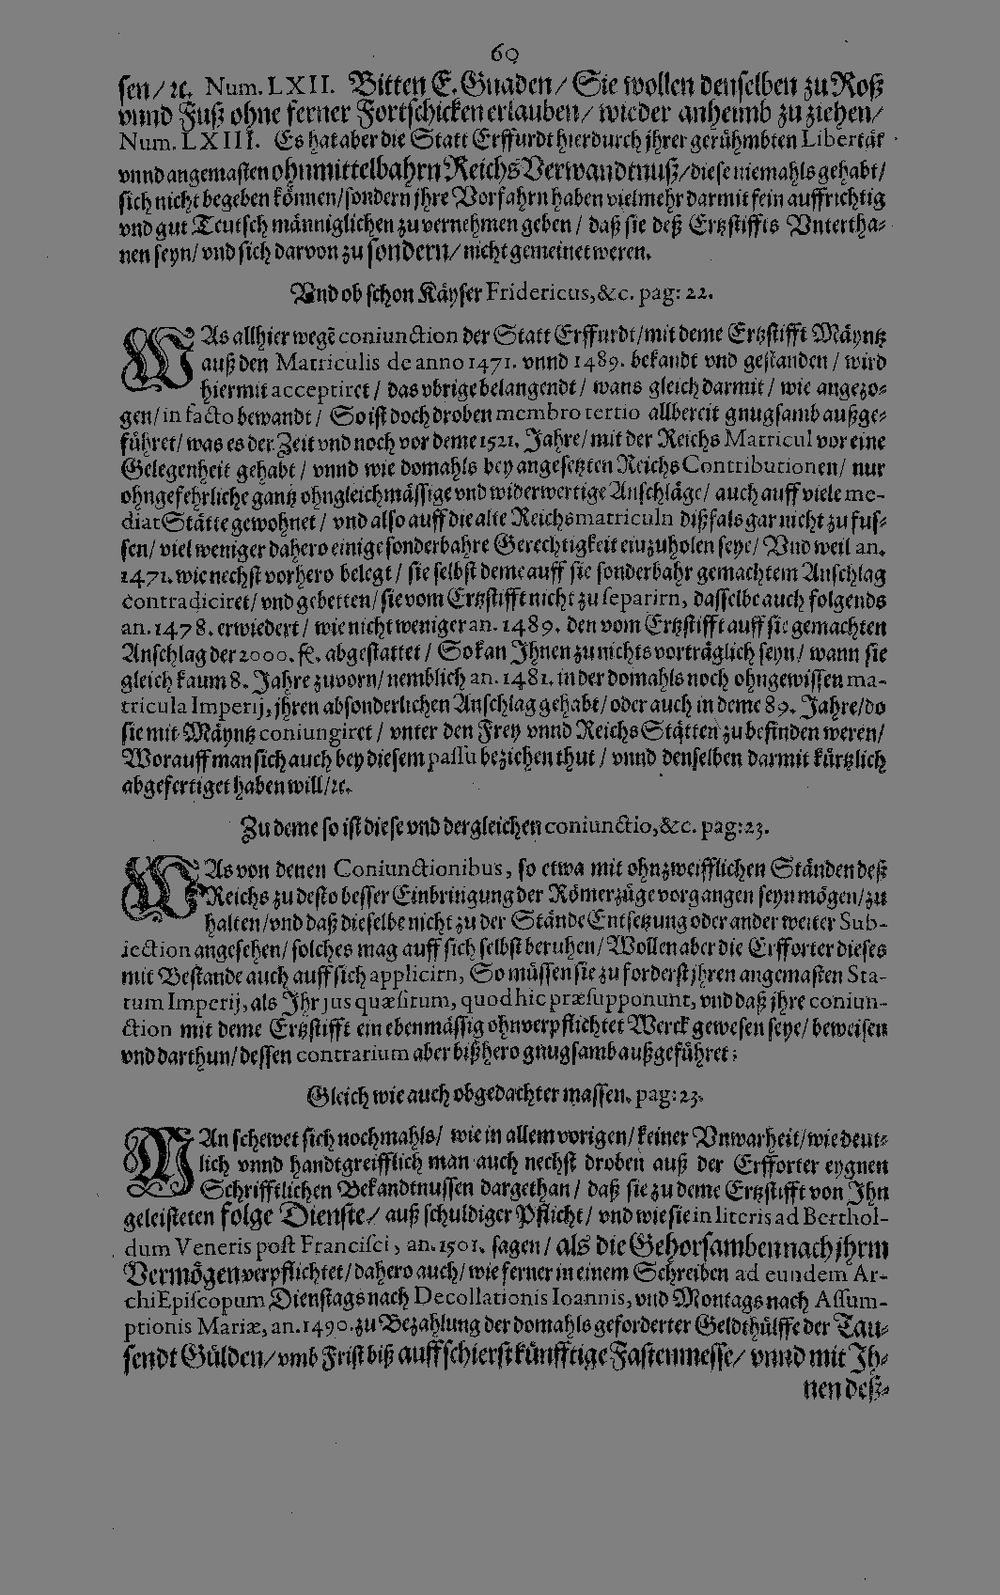 60
sen/ ꝛc. Num. LXII. Bitten E. Gnaden/ Sie wollen denselben zu Roß
vnnd Fuß ohne ferner Fortschicken erlauben/ wieder anheimb zu ziehen/
Num. LXIII. Es hat aber die Statt Erffurdt hierdurch jhrer gerühmbten Libertät
vnnd angemasten ohnmittelbahrn Reichs Verwandtnuß/ diese niemahls gehabt/
sich nicht begeben können/ sondern jhre Vorfahrn haben vielmehr darmit fein auffrichtig
vnd gut Teutsch männiglichen zu vernehmen geben/ daß sie deß Ertzstiffts Vntertha-
nen seyn/ vnd sich darvon zu sondern/ nicht gemeinet weren.
Vnd ob schon Käyser Fridericus, &c. pag: 22.
WAs allhier wegē coniunction der Statt Erffurdt/ mit deme Ertzstifft Mäyntz
auß den Matriculis de anno 1471. vnnd 1489. bekandt vnd gestanden/ wird
hiermit acceptiret/ das vbrige belangendt/ wans gleich darmit/ wie angezo-
gen/ in facto bewandt/ So ist doch droben membro tertio allbereit gnugsamb außge-
führet/ was es der Zeit vnd noch vor deme 1521. Jahre/ mit der Reichs Matricul vor eine
Gelegenheit gehabt/ vnnd wie domahls bey angesetzten Reichs Contributionen/ nur
ohngefehrliche gantz ohngleichmässige vnd widerwertige Anschläge/ auch auff viele me-
diat Stätte gewohnet/ vnd also auff die alte Reichsmatriculn dißfals gar nicht zu fus-
sen/ viel weniger dahero einige sonderbahre Gerechtigkeit einzuholen seye/ Vnd weil an.
1471. wie nechst vorhero belegt/ sie selbst deme auff sie sonderbahr gemachtem Anschlag
contradiciret/ vnd gebetten/ sie vom Ertzstifft nicht zu separirn, dasselbe auch folgends
an. 1478. erwiedert/ wie nicht weniger an. 1489. den vom Ertzstifft auff sie gemachten
Anschlag der 2000. fl. abgestattet/ So kan Ihnen zu nichts vorträglich seyn/ wann sie
gleich kaum 8. Jahre zuvorn/ nemblich an. 1481. in der domahls noch ohngewissen ma-
tricula Imperij, jhren absonderlichen Anschlag gehabt/ oder auch in deme 89. Jahre/ do
sie mit Mäyntz coniungiret/ vnter den Frey vnnd Reichs Stätten zu befinden weren/
Worauff man sich auch bey diesem passu beziehen thut/ vnnd denselben darmit kürtzlich
abgefertiget haben will/ ꝛc.
Zu deme so ist diese vnd dergleichen coniunctio, &c. pag: 23.
WAs von denen Coniunctionibus, so etwa mit ohnzweifflichen Ständen deß
Reichs zu desto besser Einbringung der Römerzüge vorgangen seyn mögen/ zu
halten/ vnd daß dieselbe nicht zu der Stände Entsetzung oder ander weiter Sub-
iection angesehen/ solches mag auff sich selbst beruhen/ Wollen aber die Erfforter dieses
mit Bestande auch auff sich applicirn, So müssen sie zu forderst jhren angemasten Sta-
tum Imperij, als Ihr jus quæsitum, quod hic præsupponunt, vnd daß jhre coniun-
ction mit deme Ertzstifft ein ebenmässig ohnverpflichtet Werck gewesen seye/ beweisen
vnd darthun/ dessen contrarium aber bißhero gnugsamb außgeführet;
Gleich wie auch obgedachter massen. pag: 23.
MAn schewet sich nochmahls/ wie in allem vorigen/ keiner Vnwarheit/ wie deut-
lich vnnd handtgreifflich man auch nechst droben auß der Erfforter eygnen
Schrifftlichen Bekandtnussen dargethan/ daß sie zu deme Ertzstifft von Ihn
geleisteten folge Dienste/ auß schuldiger Pflicht/ vnd wie sie in literis ad Berthol-
dum Veneris post Francisci, an. 1501. sagen/ als die Gehorsamben nach jhrm
Vermögen verpflichtet/ dahero auch/ wie ferner in einem Schreiben ad eundem Ar-
chiEpiscopum Dienstags nach Decollationis Ioannis, vnd Montags nach Assum-
ptionis Mariæ, an. 1490. zu Bezahlung der domahls geforderter Geldthülffe der Tau-
sendt Gülden/ vmb Frist biß auff schierstkünfftige Fastenmesse/ vnnd mit Ih-
nen deß-